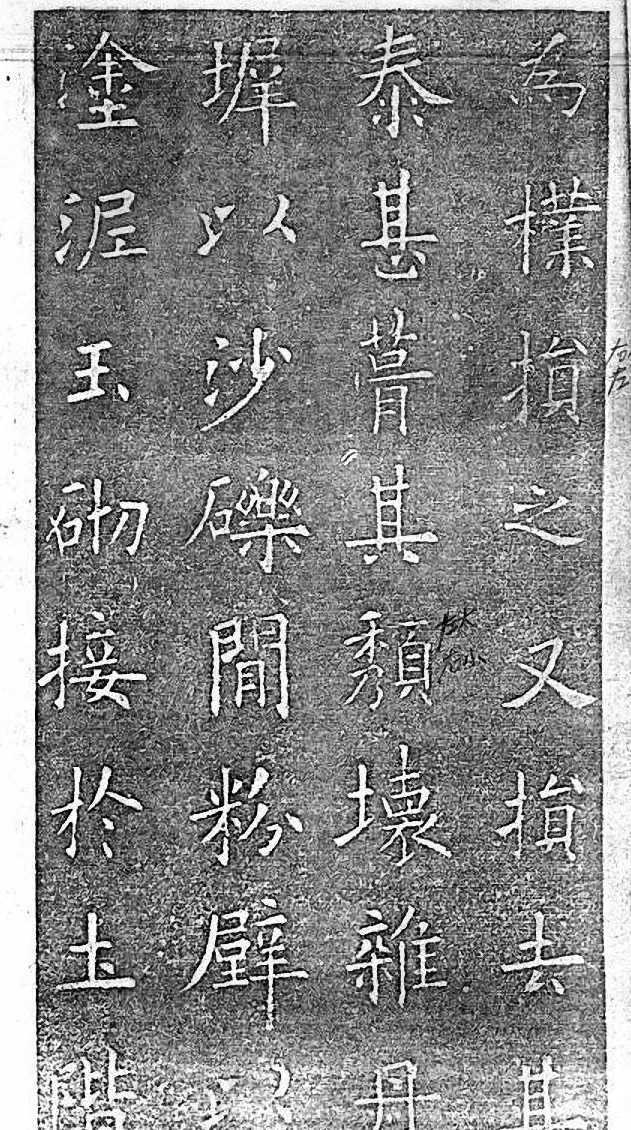 為樸損之又損去其
泰甚葺其頹壞雜丹
墀以沙礫間粉壁以
塗泥玉砌接於土階